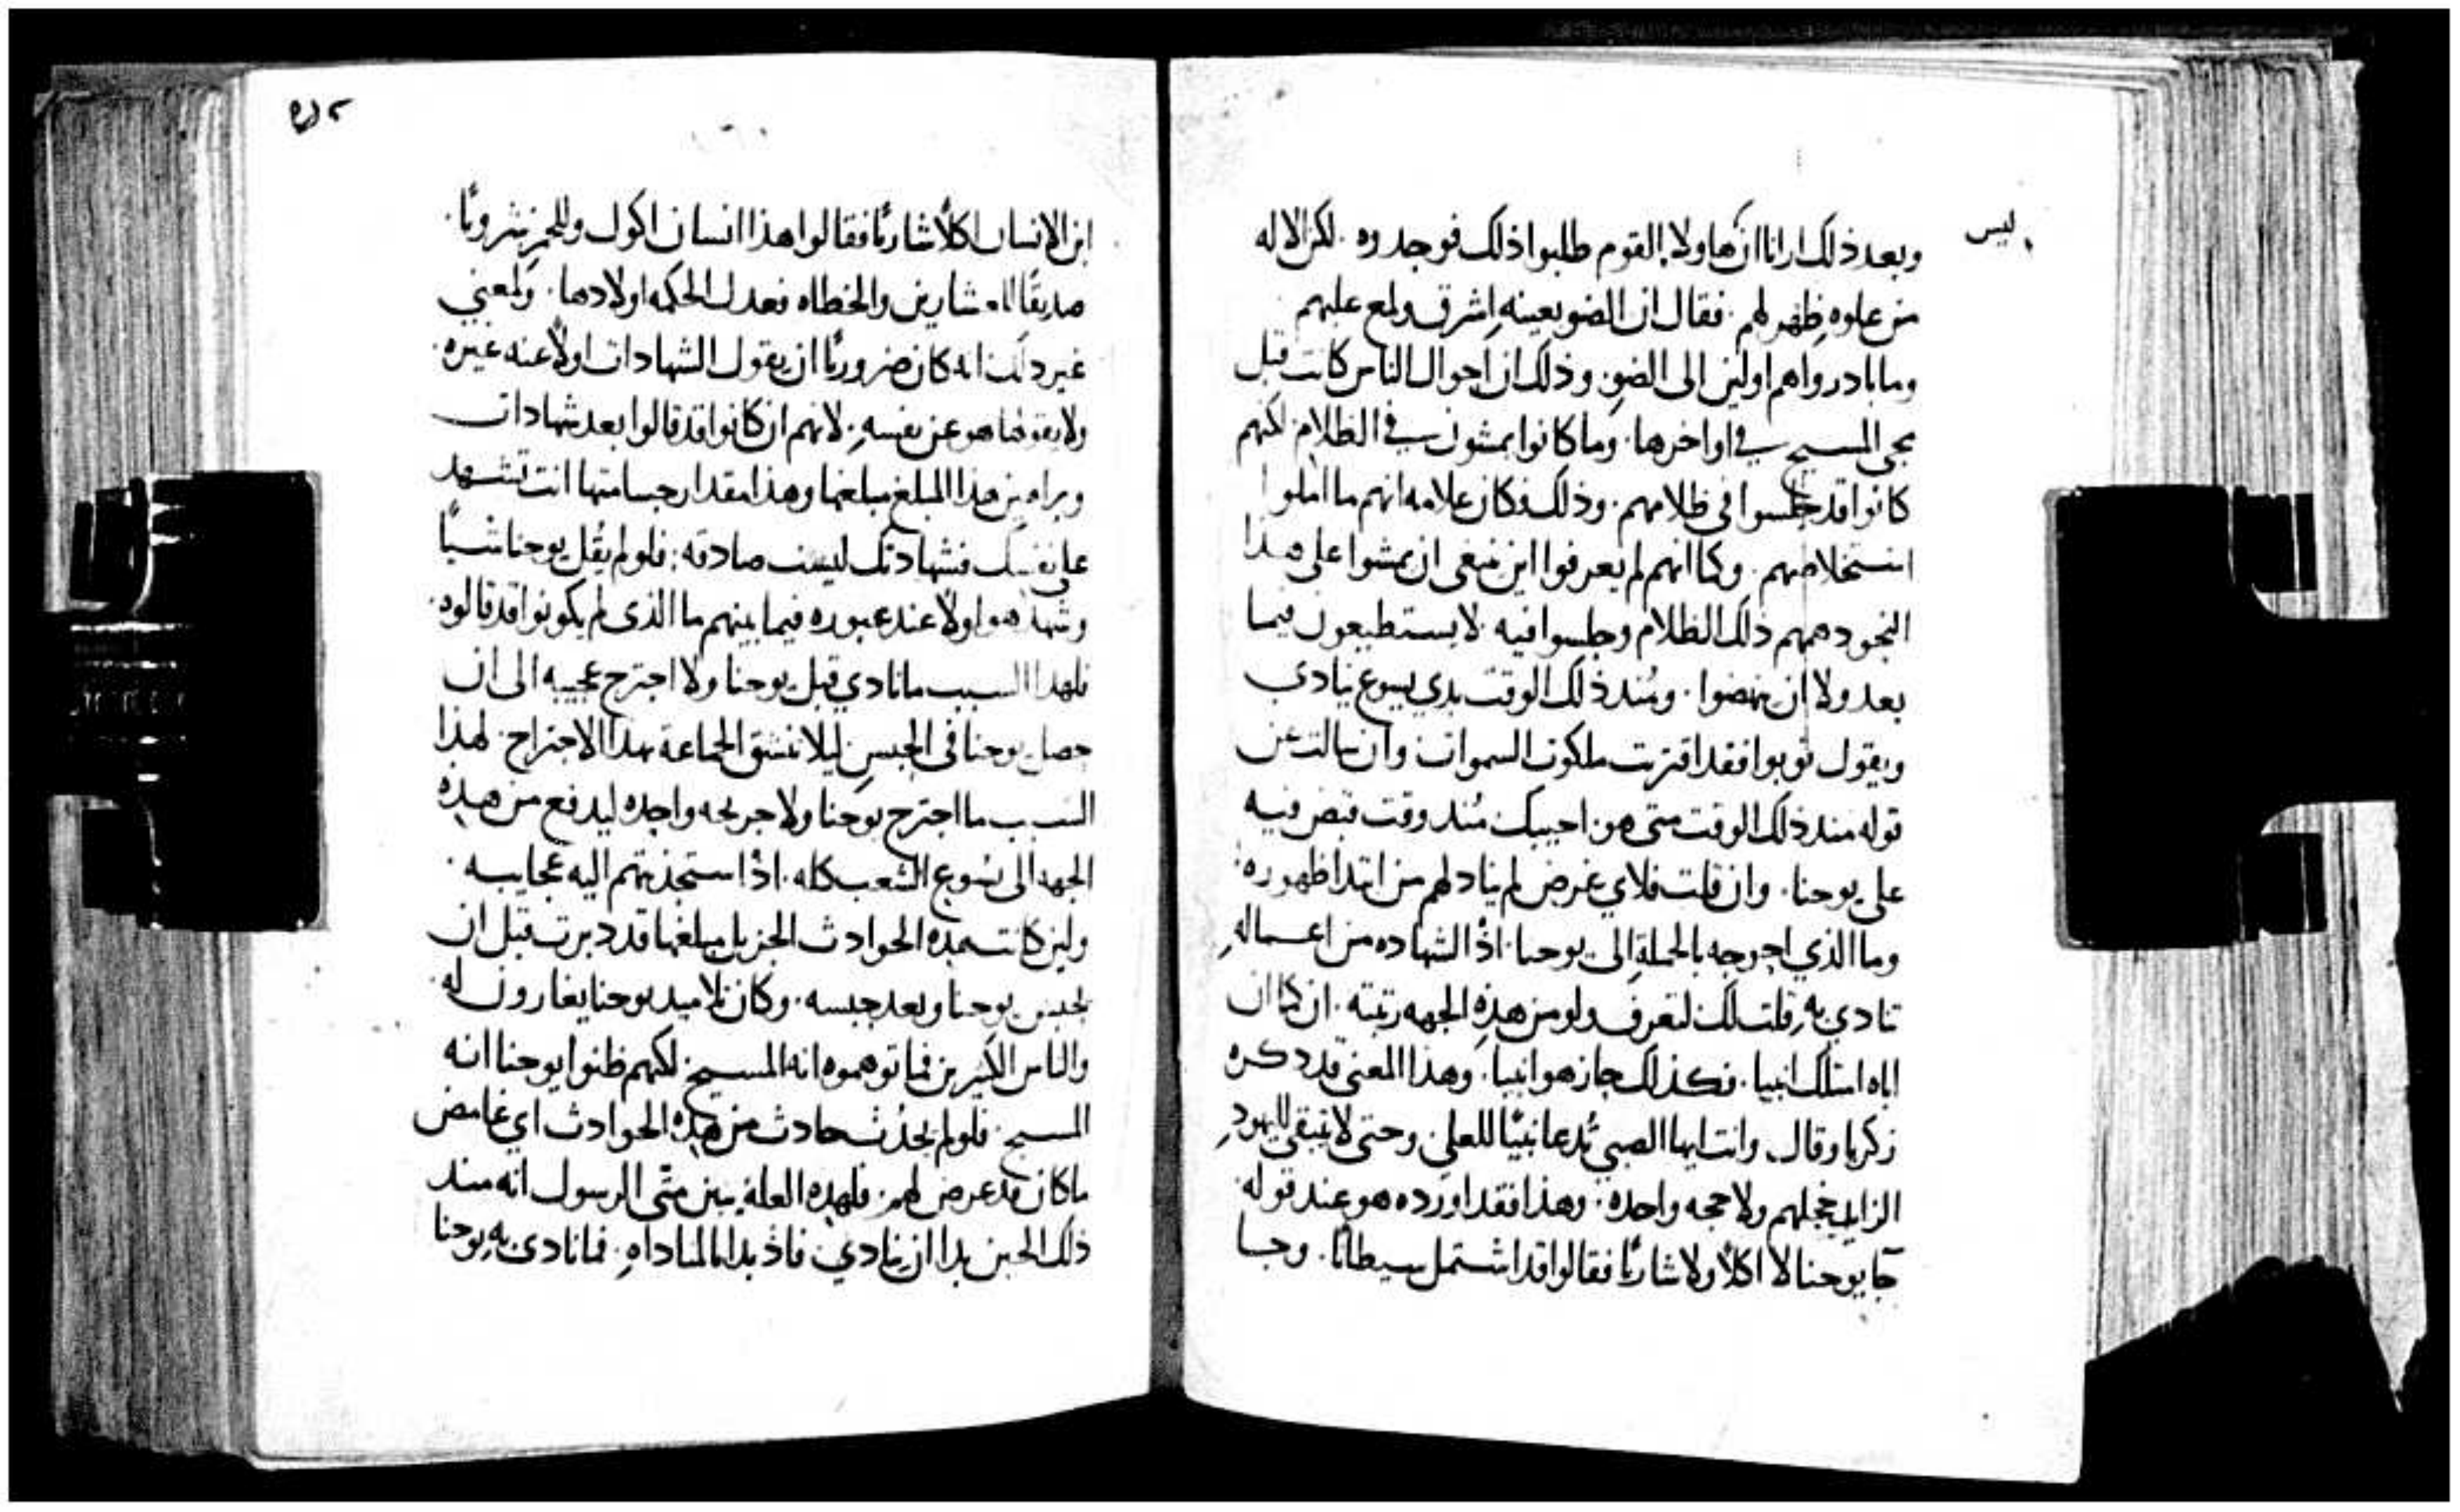 ليس
وبعد ذلك ارانا ان هاولا القوم طلبوا ذلك فوجدوه . لكن الاله
من علوه ظهر لهم . فقال ان الضو بعينه اشرق ولمع عليهم
وما بادروا هم اولين الى الضو . وذلك ان احوال الناس كانت قبل
مجى المسيح في اواخرها . وما كانوا يمشون في الظلام . لكنهم
كانوا قد جلسوا في ظلامهم . وذلك فكان علامه انهم ما املوا
استخلاصهم . وكما انهم لم يعرفوا اين ينبغي ان يمشوا على هذا
النحو دهمهم ذلك الظلام وجلسوا فيه لا يستطيعون فيما
بعد ولا ان ينهضوا . ومند ذلك الوقت بدي يسوع ينادي
ويقول توبوا فقد اقتربت ملكوت السموات وان سالت عن
قوله مند ذلك الوقت متى هو . اجيبك مند وقت قبض فيه
على يوحنا . وان قلت فلاي غرض لم يناد لهم من ابتدا ظهوره .
وما الذي احوجه بالجملة الى يوحنا . اذ الشهاده من اعماله
تنادي به . قلت لك لتعرف ولو من هذه الجهه رتبته . ان كما ان
اباه امتلك انبيا . فكذلك حاز هو انبيا . وهذا المعنى قد ذكره
زكريا وقال . وانت ايها الصبي تدعا نبيًا للعلي . وحتى لا تبقى لليهود
الزايد خجلهم ولا حجه واحده . وهذا فقد اورده هو عند قوله
جا يوحنا لا اكلاً ولا شاربًا فقالوا قد اشتمل سيطانًا . وجا
ابن الانسان اكلاً شاربًا فقالوا هذا انسان اكول وللخمر شروبًا .
صديقًا للعشارين والخطاه فعدلت الحكمه اولادها . ولمعني
غير ذلك انه كان ضروريًا ان يقول الشهادات اولاً عنه غيره .
ولا يقولها هو عن نفسه . لانهم ان كانوا قد قالوا بعد شهادات
وبراهين هذا المبلغ مبلغها وهذا مقدار جسامتها انت تشهد
على نفسك فشهادتك ليست صادقه . فلو لم يقل يوحنا شيًا
وشهد هو اولاً عند عبوره فيما بينهم ما الذي لم يكونوا قد قالوه .
فلهذا السبب ما نادي قبل يوحنا ولا اجترح عجيبه الى ان
حصل يوحنا في الحبس ليلا تنشق الجماعة بهذا الاجتراح . لهذا
السبب ما اجترح يوحنا ولا جريحه واحده ليدفع من هذه
الجهه الى يسوع الشعب كله . اذ استجذبتهم اليه عجايبه .
ولين كانت هذه الحوادث الجزيل مبلغها قد دبرت قبل ان
يحبس يوحنا وبعد حبسه . وكان تلاميذ يوحنا يغارون له .
والناس الكثيرين فما توهموه انه المسيح . لكنهم ظنوا يوحنا انه
المسيح . فلو لم يحدث حادث من هذه الحوادث اي غامض
ما كان قد عرض لهم . فلهذه العلة يبين متى الرسول انه مند
ذلك الحين بدا ان ينادي . فاذ بدا بالمناداه . فما نادى به يوحنا